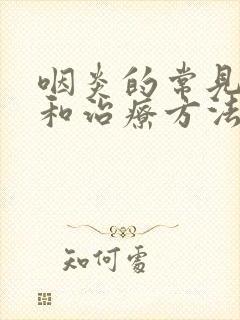 咽炎的常见
和治疗方法
知何处